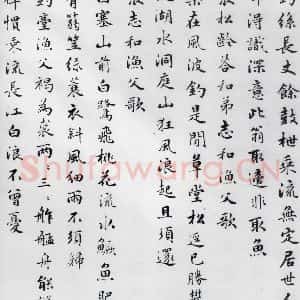 釣絲長丈餘鼓枻乘流無定居世人
那得識深意此翁取適非取魚
張松齡答和弟志和漁父歌
樂在風波釣是閒草堂松逕已勝攀
太湖水洞庭山狂風浪起且須還
張志和漁父歌
西塞山前白鷺飛桃花流水鱖魚肥
青箬笠綠蓑衣斜風細雨不須歸
釣臺漁父褐為裘兩三三舴艋舟能縱
棹慣乘流長江白浪不曾憂
Shufawang.CN